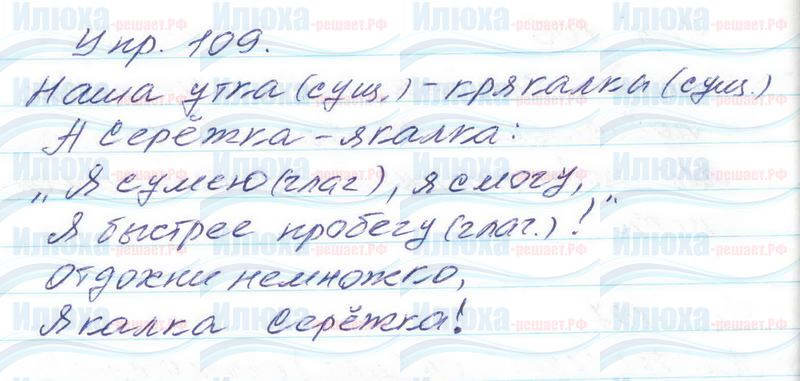 Упр. 109.
Наша утка (сущ.) - крякалка (сущ.)
А Серёжка - якалка:
„Я сумею (глаг), я смогу,
Я быстрее пробегу (глаг.)!“
Отдохни немножко,
Якалка Серёжка!